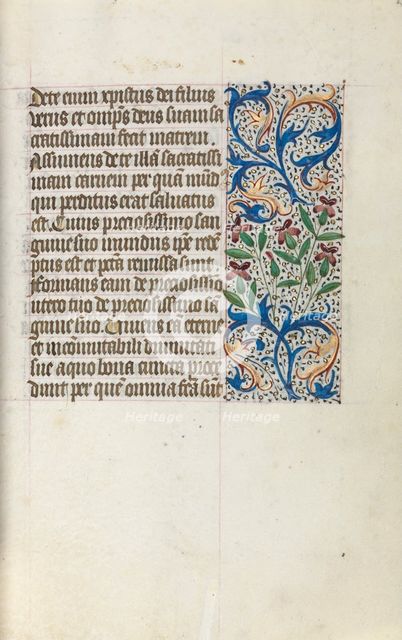 De te enim xpistus dei filius
verus et omĩps deus suam sa
cratissimam fecit matrem.
Assumens de te illã sacratissi
mam carnem per quã mũdꝰ
qui perditus erat saluatus
est. Cuius preciosissimo san
guine suo mundus ipse redẽ
ptus est et pctã remissa sunt
fformans eam de preciosissimo
utero tuo de preciosissimo sã
guine suo. Coniuens eã eterne
et incomutabili diuinitati
sue a quo bona cuncta proce
dunt per quẽ omnia fcã sũt
Heritage
Heritage
Heritage
Heritage